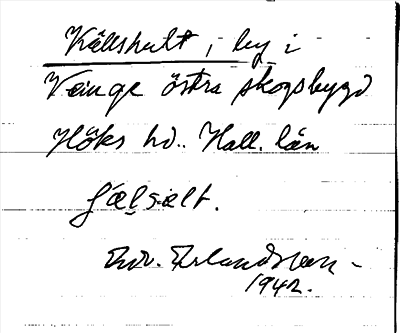 Källshult, by i
Veinge östra skogsbygd
Höks hd.. Hall. län
Edv. Erlandsson
1942.